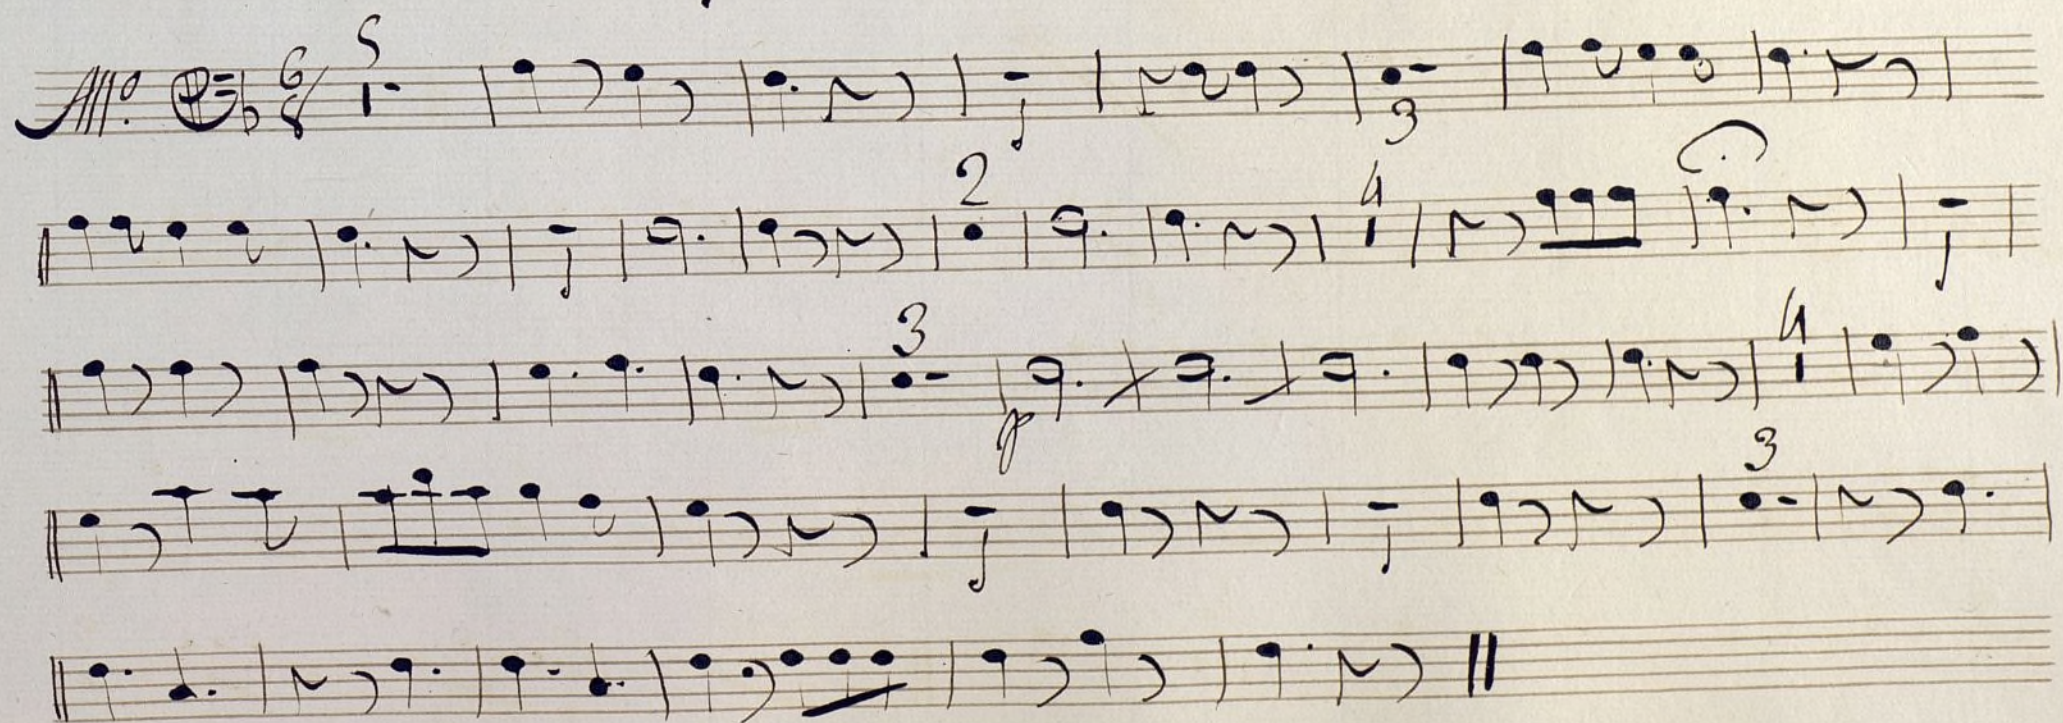 5
All.o 6/8
3
2 4
3 4
p
3